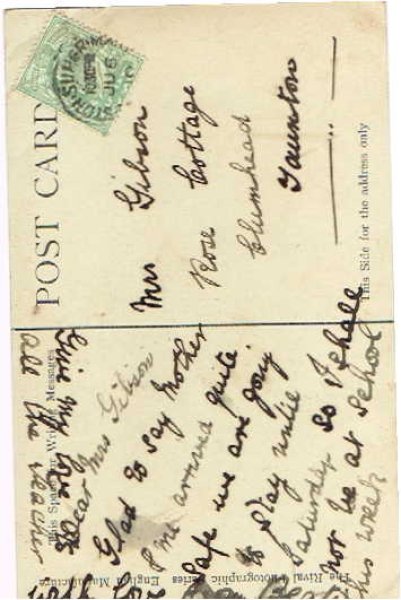 POST CARD
This Space for Writing Messages
This Side for the address only
The Rival Photographic Series
English Manufacture
WESTON-SUPER-MARE
JU 6
Mrs Gibson
Rose Cottage
Taunton
Dear Mrs Gibson
Glad to say Mother
& me arrived quite
safe we are going
to stay until
Saturday so I shall
not be at School
this week
Give My Love to
all the
with Love
from